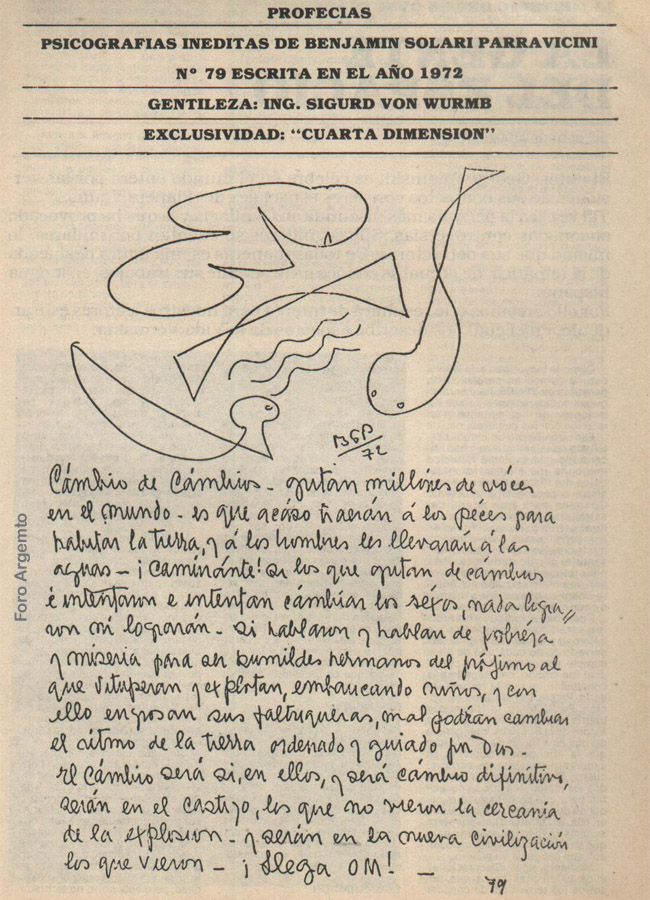 PROFECIAS
PSICOGRAFIAS INEDITAS DE BENJAMIN SOLARI PARRAVICINI
Nº 79 ESCRITA EN EL AÑO 1972
GENTILEZA: ING. SIGURD VON WURMB
EXCLUSIVIDAD: “CUARTA DIMENSION”
BSP
72
Cámbio de Cámbios - gritan millónes de vóces
en el mundo - es que acáso traerán á los péces para
habitar la tierra, y á los hombres les llevarán á las
aguas - ¡Caminánte! si los que gritan de cámbios
é intentaron e intentan cámbiar los séxos, nada logra,,
ron ni lograrán - si hablaron y hablan de pobréza
y miseria para ser humildes hermanos del prójimo al
que vituperan y explotan, embaucando niños, y con
ello engrosan sus faltriqueras, mal podrían cambiar
el ritmo de la tierra ordenado y guiado por Dios -
El Cámbio será si, en ellos, y será cámbio difinitivo,
serán en el castigo, los que no vieron la cercanía
de la explosion - y serán en la nueva civilización
los que vieron - ¡ Llega OM! -
79
Foro Argemto